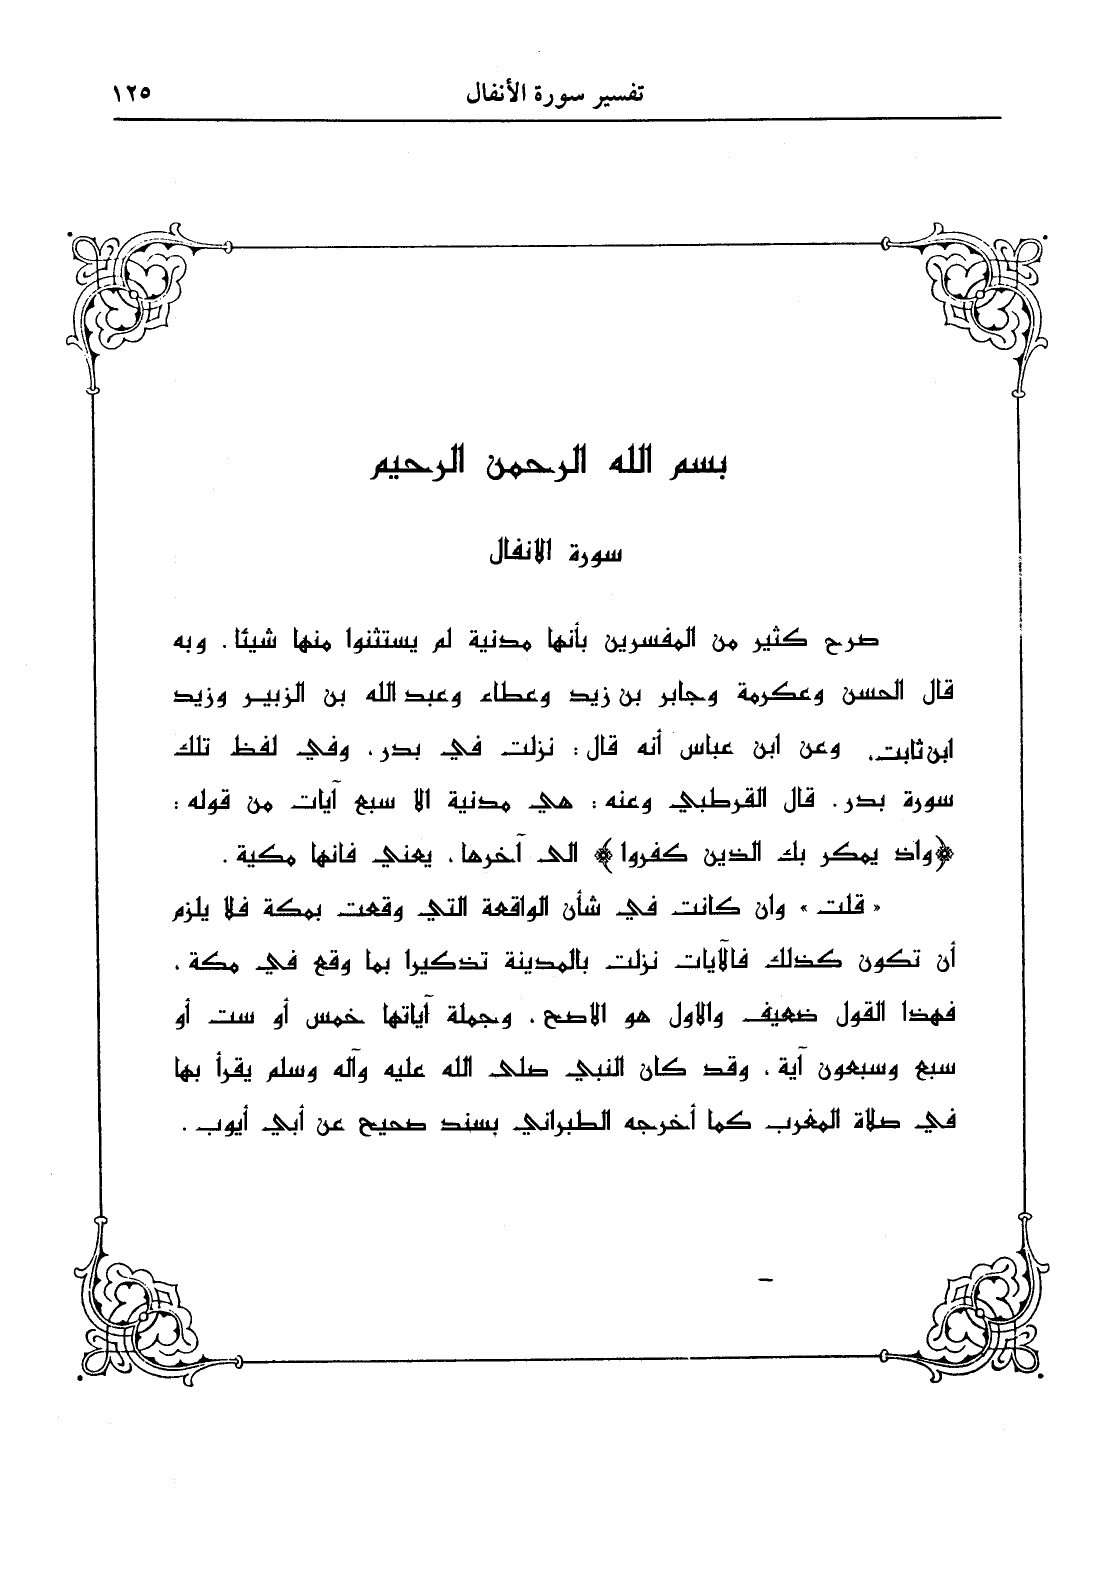 تفسير سورة الأنفال ١٢٥
بسم الله الرحمن الرحيم
سورة الانفال
صرح كثير من المفسرين بأنها مدنية لم يستثنوا منها شيئا . وبه
قال الحسن وعكرمة وجابر بن زيد وعطاء وعبد الله بن الزبير وزيد
ابن ثابت، وعن ابن عباس أنه قال : نزلت في بدر ، وفي لفظ تلك
سورة بدر . قال القرطبي وعنه : هي مدنية الا سبع آيات من قوله :
﴿واذ يمكر بك الذين كفروا﴾ الى آخرها ، يعني فانها مكية .
« قلت » وان كانت في شأن الواقعة التي وقعت بمكة فلا يلزم
أن تكون كذلك فالآيات نزلت بالمدينة تذكيرا بما وقع في مكة ،
فهذا القول ضعيف والاول هو الاصح ، وجملة آياتها خمس أو ست أو
سبع وسبعون آية ، وقد كان النبي صلى الله عليه وآله وسلم يقرأ بها
في صلاة المغرب كما أخرجه الطبراني بسند صحيح عن أبي أيوب .